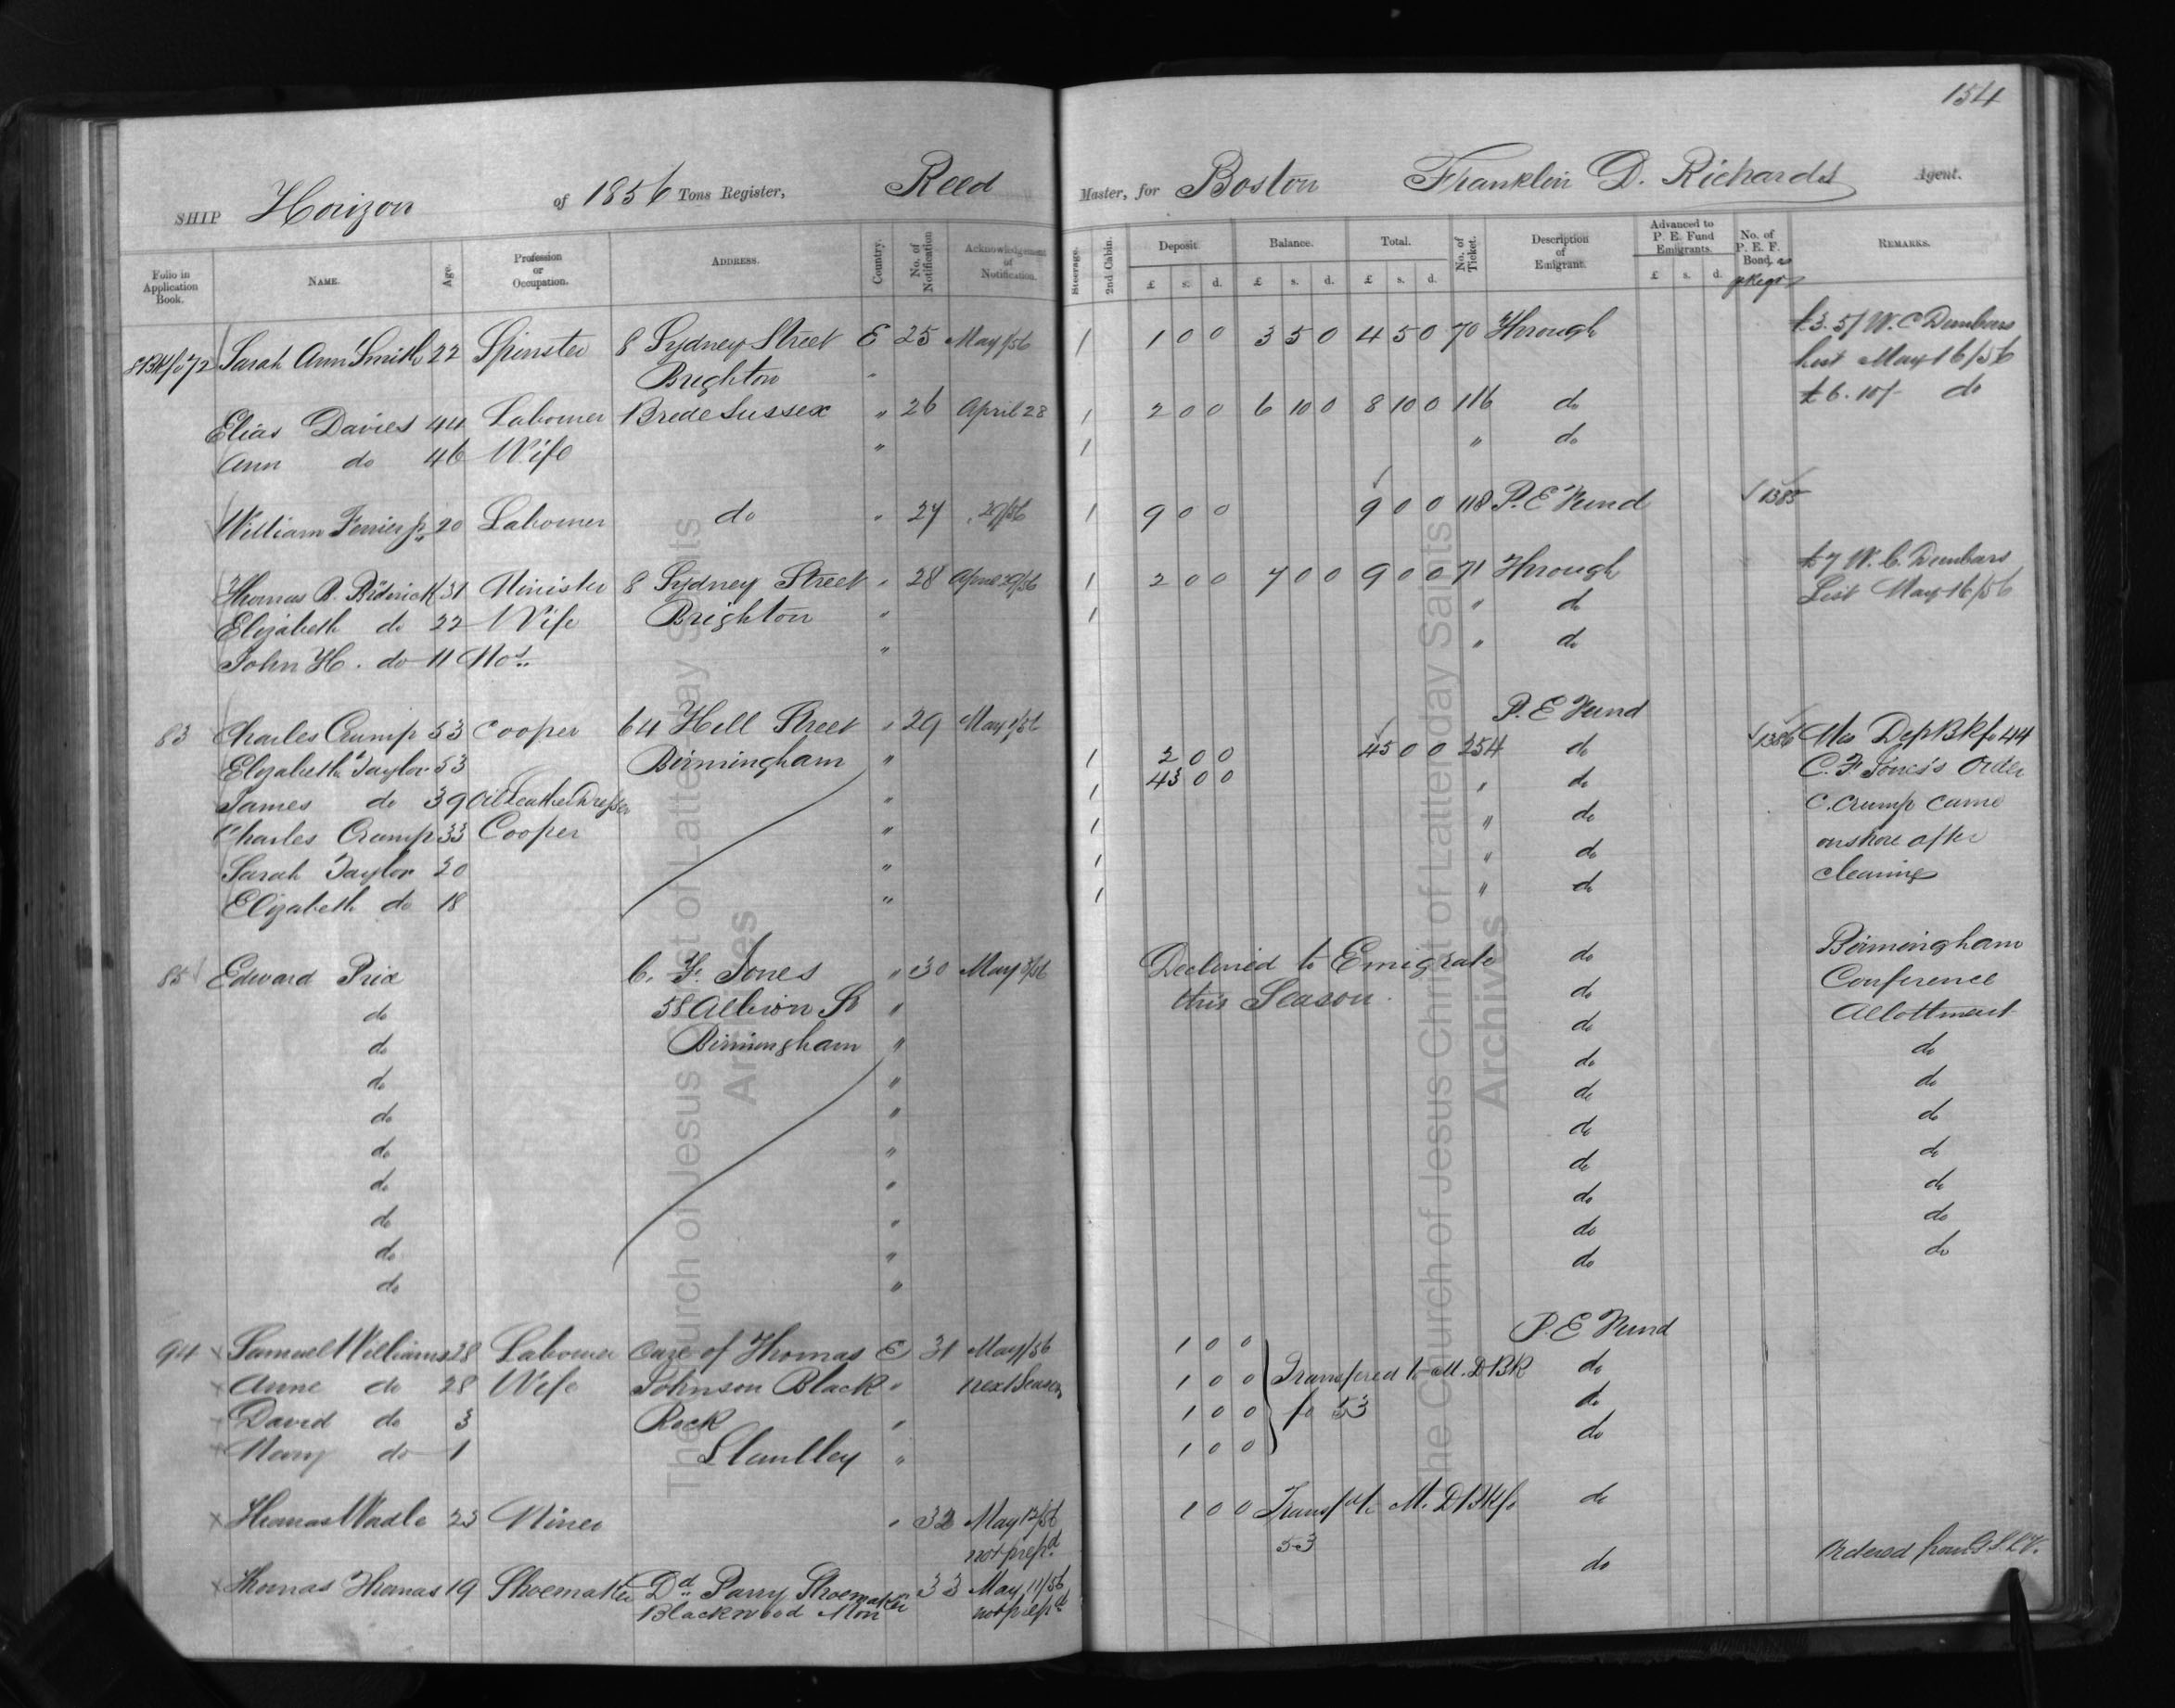 154
SHIP Horizon of 1856 Tons Register, Reed Master, for Boston Franklin D. Richards Agent.
Folio in Application Book. NAME. Age. Profession or Occupation. ADDRESS. Country. No. of Notification Acknowledgement of Notification. Steerage. 2nd Cabin. Deposit. £ s. d. Balance. £ s. d. Total. £ s. d. No. of Ticket. Description of Emigrant. Advanced to P. E. Fund Emigrants. £ s. d. No. of P. E. F. Bond. REMARKS.
Sarah Ann Smith 22 Spinster 8 Sydney Street E 25 May 1/56 1 1 0 0 3 5 0 4 5 0 70 Through £3.5/ W. C Dunbars
Brighton " list May 16/56
Elias Davies 44 Labourer Brede Sussex " 26 April 28 1 2 0 0 6 10 0 8 10 0 116 do £6.10/- do
Ann do 46 Wife " 1 " do
William Ferrier Jr 20 Labourer do " 27 " 29/56 1 9 0 0 9 0 0 118 P. E Fund 1385
Thomas B. Broderick 31 Minister 8 Sydney Street " 28 April 29/56 1 2 0 0 7 0 0 9 0 0 71 Through £7 W. C. Dunbars
Elizabeth do 22 Wife Brighton " 1 " do List May 16/56
John H. do 11 Mos. " " do
P. E Fund
83 Charles Crump 53 Cooper 64 Hill Street " 29 May 1/56 1 2 0 0 45 0 0 254 do 1386 Mis Dep Bk fo 44
Elizabeth Taylor 53 Birmingham " 1 43 0 0 " do C. F Jones's Order
James do 39 Oil Leather Dresser " 1 " do C. Crump came
Charles Crump 33 Cooper " 1 " do onshore after
Sarah Taylor 20 " 1 " do clearing
Elizabeth do 18 "
85 Edward Price C. F. Jones " 30 May 3/56 Declined to Emigrate do Birmingham
do 58 Albion St " this Season. do Conference
do Birmingham " do Allottment
do " do do
do " do do
do " do do
do " do do
do " do do
do " do do
do " do do
P. E Fund
94 Samuel Williams 28 Labourer Care of Thomas E 31 May 1/56 1 0 0
Anne do 28 Wife Johnson Black " next Season 1 0 0 Transfered to M. D BK do
David do 3 Rock " 1 0 0 fo 53 do
Mary do 1 Llanlley " 1 0 0 do
Thomas Wadle 23 Miner " 32 May 12/56 1 0 0 Transfd to M. D Bk fo do
not prepd 53
Thomas Thomas 19 Shoemaker Dd Parry Shoemaker 33 May 11/56 do Ordered from G. S. L. V.
Blackwood Mon not prepd
The Church of Jesus Christ of Latter-day Saints
Archives
The Church of Jesus Christ of Latter-day Saints
Archives